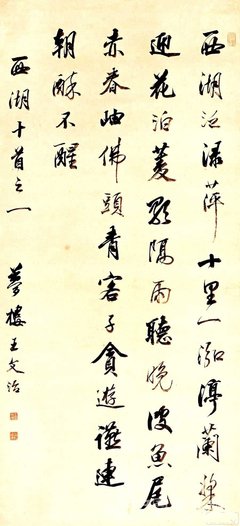 西湖泛渌萍十里一泓渟蘭槳
迎花泊菱歌隔雨聽晚波魚尾
赤春岫佛頭青客子貪遊讌連
朝醉不醒
西湖十首之一 夢樓王文治